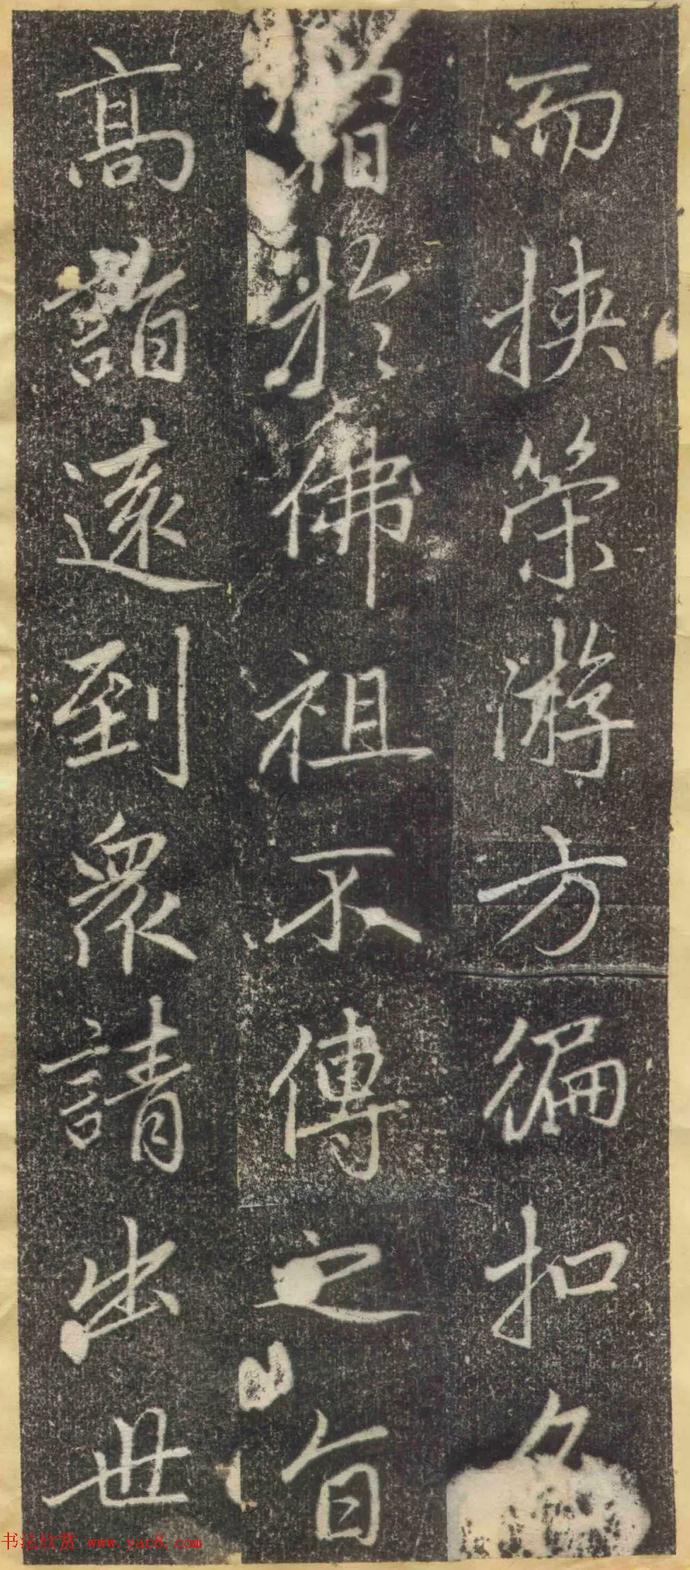 而挾策游方徧扣
於佛祖不傳之旨
高詣遠到衆請出世
书法欣赏 www.yac8.com